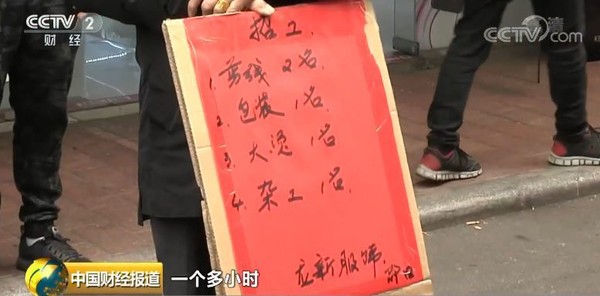 CCTV 2
财经
CCTV.com
招工.
1. 剪线 2名
2. 包装 1名
3. 大烫 1名
4. 杂工 1名
新服饰.
中国财经报道
一个多小时